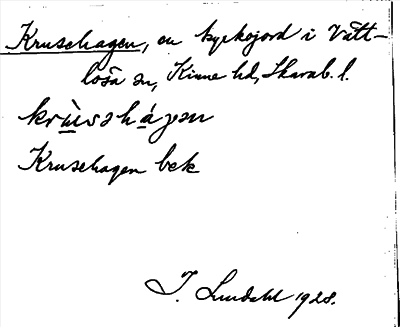 Krusehagen, en kyrkojord i Vätt-
lösa sn, Kinne hd, Skarab. l.
krùsəhágən
Krusehagen bek
I. Lundahl 1928.